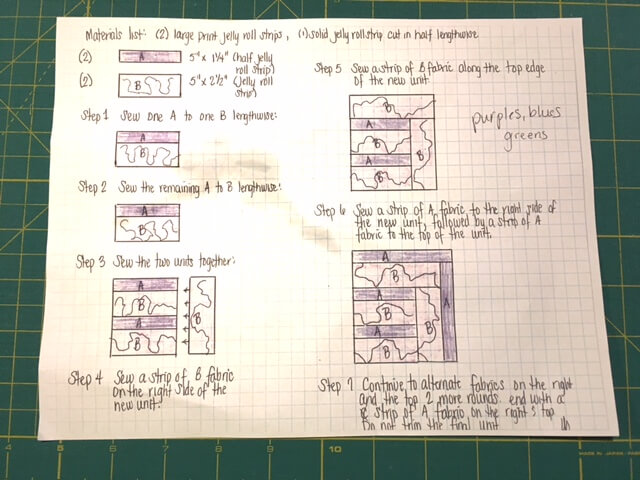 Materials list: (2) large print jelly roll strips, (1) solid jelly roll strip cut in half lengthwise
(2) A 5" x 1¼" (half jelly
roll strip)
(2) B 5" x 2½" (jelly roll
strip)
Step 1 Sew one A to one B lengthwise:
A
B
Step 2 Sew the remaining A to B lengthwise:
A
B
Step 3 Sew the two units together:
A
B
A
B
B
Step 4 Sew a strip of B fabric
on the right side of the
new unit.
Step 5 Sew a strip of B fabric along the top edge
of the new unit.
B
A
B
A
B
B
purples, blues
greens
Step 6 Sew a strip of A fabric to the right side of
the new unit, followed by a strip of A
fabric to the top of the unit.
A
B
A
B
A
B
B
A
Step 7 Continue to alternate fabrics on the right
and the top 2 more rounds. end with a
strip of A fabric on the right & top
Do not trim the final unit
10
MADE IN JAPAN